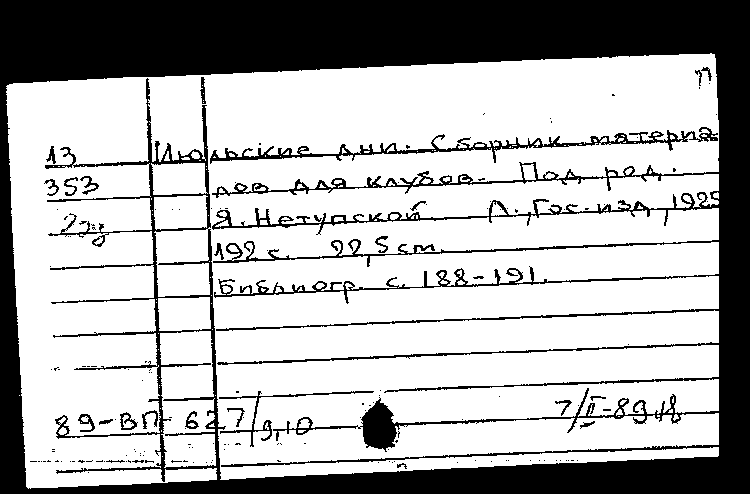 П
13 Июльские дни. Сборник материа-
353 лов для клубов. Под ред.
2эк Я. Нетупской. Л., Гос. изд., 1925
192 с. 22,5 см.
Библиогр. с. 188-191.
89-ВП 627/9,10 7/II-89